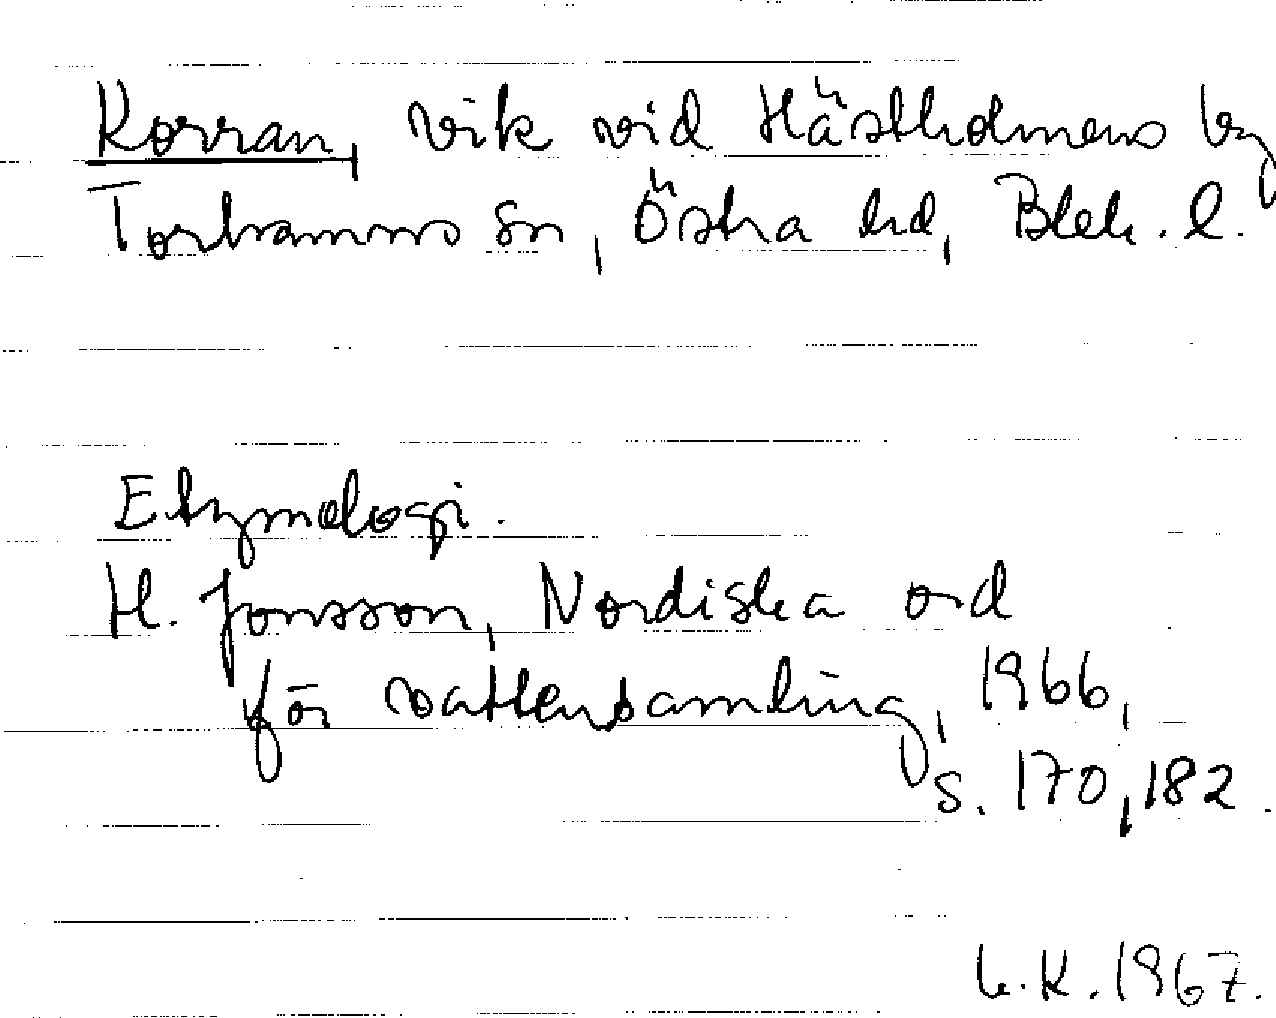 Korran, vik vid Hästholmens by
Torhamns sn, Östra hd, Blek. l.
Etymologi.
H. Jonsson, Nordiska ord
för vattensamling, 1966,
s. 170, 182.
K. 1967.